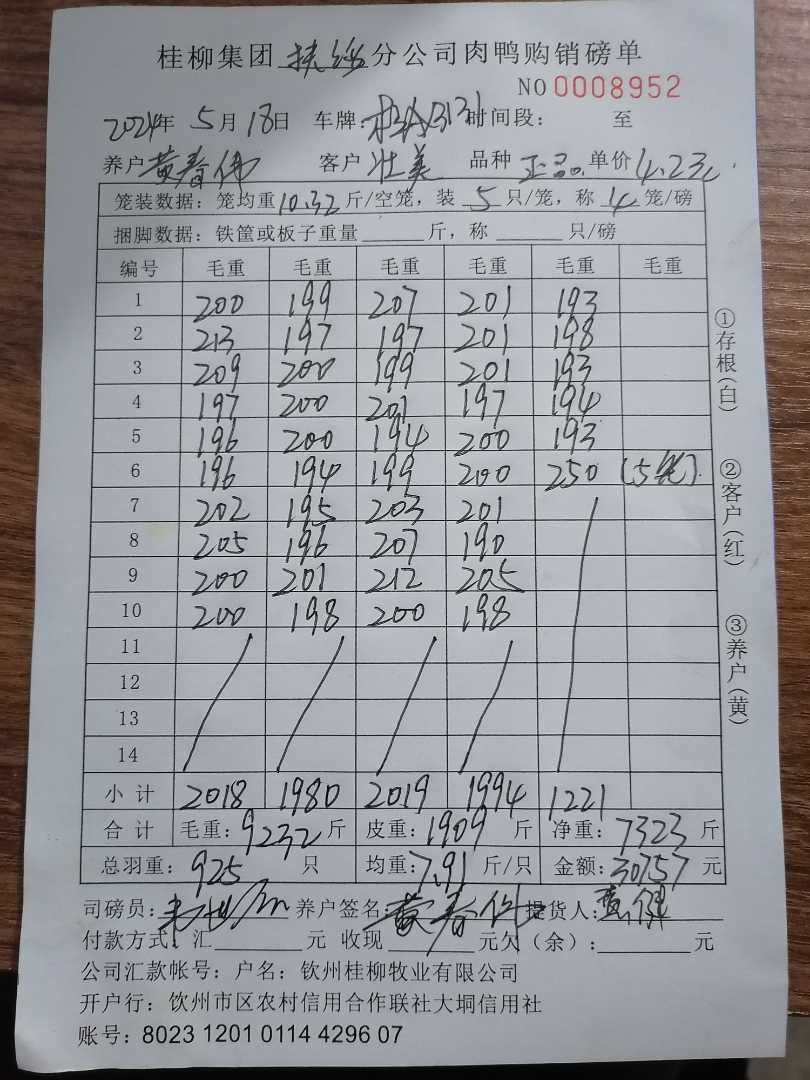 桂柳集团扶绥分公司肉鸭购销磅单
NO 0008952
2024年 5月 18日 车牌: 时间段: 至
养户 黄春伟 客户 壮美 品种 正品 单价 4.2元
笼装数据: 笼均重 10.32 斤/空笼, 装 5 只/笼, 称 4 笼/磅
捆脚数据: 铁筐或板子重量 斤, 称 只/磅
编号 毛重 毛重 毛重 毛重 毛重 毛重
1 200 199 207 201 193
2 213 197 197 201 198
3 209 200 199 201 193
4 197 200 201 197 194
5 196 200 194 200 193
6 196 194 199 200 250 (5笼)
7 202 195 203 201
8 205 196 207 190
9 200 201 212 205
10 200 198 200 198
11
12
13
14
小计 2018 1980 2019 1994 1221
合计 毛重: 9232 斤 皮重: 1909 斤 净重: 7323 斤
总羽重: 925 只 均重: 7.91 斤/只 金额: 30757 元
①存根(白)
②客户(红)
③养户(黄)
司磅员: 养户签名 黄春伟 提货人:
付款方式: 汇 元 收现 元欠(余): 元
公司汇款帐号: 户名: 钦州桂柳牧业有限公司
开户行: 钦州市区农村信用合作联社大垌信用社
账号: 8023 1201 0114 4296 07